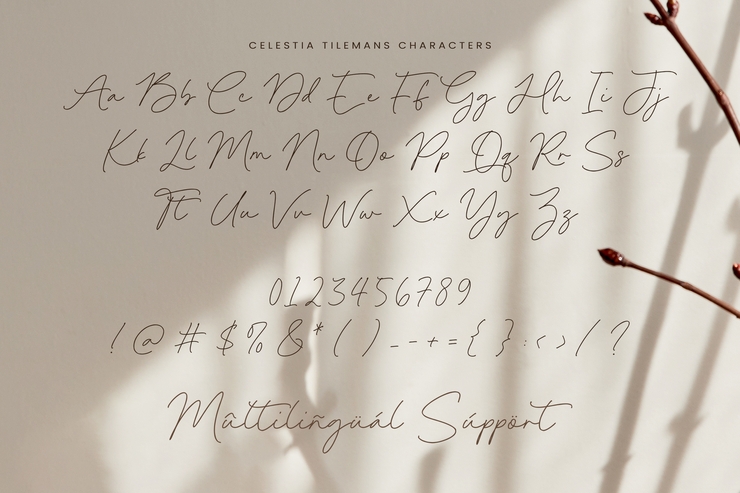 CELESTIA TILEMANS CHARACTERS
Aa Bb Cc Dd Ee Ff Gg Hh Ii Jj
Kk Ll Mm Nn Oo Pp Qq Rr Ss
Tt Uu Vv Ww Xx Yy Zz
0123456789
! @ # $ % & * ( ) _ - + = { } : < > / ?
Mûltiliñgüál Súppört